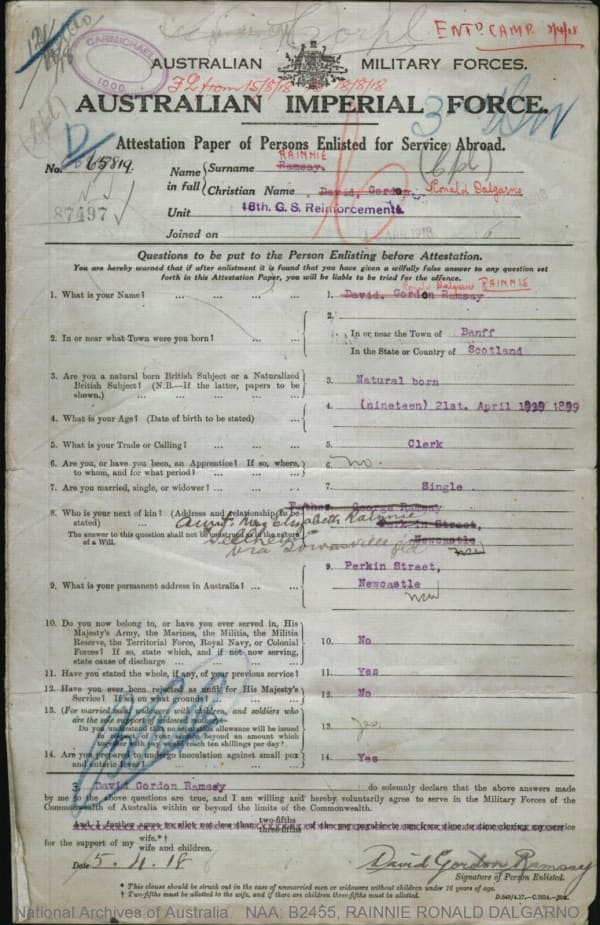 Corpl
ENTD. CAMP 3/4/18
CARMICHAEL
1000
AUSTRALIAN MILITARY FORCES.
from 15/8/18 18/8/18
AUSTRALIAN IMPERIAL FORCE.
3
D
Attestation Paper of Persons Enlisted for Service Abroad.
(Cpl)
No. 65819
RAINNIE
Name in full { Surname Ramsay,
Christian Name David, Gordon, Ronald Dalgarno
87497
Unit 18th. G.S. Reinforcements
Joined on 1918
Questions to be put to the Person Enlisting before Attestation.
You are hereby warned that if after enlistment it is found that you have given a wilfully false answer to any question set
forth in this Attestation Paper, you will be liable to be tried for the offence.
Ronald Dalgarno RAINNIE
1. What is your Name? ... ... ... 1. David, Gordon Ramsay
2. In or near what Town were you born? ... 2. In or near the Town of Banff
In the State or Country of Scotland
3. Are you a natural born British Subject or a Naturalized
British Subject? (N.B.—If the latter, papers to be
shown.) ... ... ... 3. Natural born
4. What is your Age? (Date of birth to be stated) ... 4. (nineteen) 21st. April 1939 1899
5. What is your Trade or Calling? ... ... ... 5. Clerk
6. Are you, or have you been, an Apprentice? If so, where,
to whom, and for what period? ... ... 6. no.
7. Are you married, single, or widower? ... ... 7. Single
8. Who is your next of kin? (Address and relationship to be
stated) ... Father George Ramsay
Perkin Street,
Newcastle
Aunt. Elizabeth
via Townsville
nsw
The answer to this question shall not be construed as in the nature
of a Will.
9. What is your permanent address in Australia? ... ... 9. Perkin Street,
Newcastle
nsw
10. Do you now belong to, or have you ever served in, His
Majesty's Army, the Marines, the Militia, the Militia
Reserve, the Territorial Force, Royal Navy, or Colonial
Forces? If so, state which, and if not now serving,
state cause of discharge ... ... ... 10. No
11. Have you stated the whole, if any, of your previous service? 11. Yes
12. Have you ever been rejected as unfit for His Majesty's
Service? If so, on what grounds? ... 12. No
13. (For married men, widowers with children, and soldiers who
are the sole support of widowed mother)—
Do you understand that no separation allowance will be issued
in respect of your service beyond an amount which
together with pay would reach ten shillings per day? 13. yes.
14. Are you prepared to undergo inoculation against small pox
and enteric fever? ... ... 14. Yes
I, David Gordon Ramsay do solemnly declare that the above answers made
by me to the above questions are true, and I am willing and hereby voluntarily agree to serve in the Military Forces of the
Commonwealth of Australia within or beyond the limits of the Commonwealth.
And I further agree to allot not less than two-fifths three-fifths of the pay payable to me from time to time during my service
for the support of my wife.*†
wife and children.
Date 5.4.18 David Gordon Ramsay
Signature of Person Enlisted.
* This clause should be struck out in the case of unmarried men or widowers without children under 16 years of age.
† Two-fifths must be allotted to the wife, and if there are children three-fifths must be allotted.
National Archives of Australia NAA: B2455, RAINNIE RONALD DALGARNO